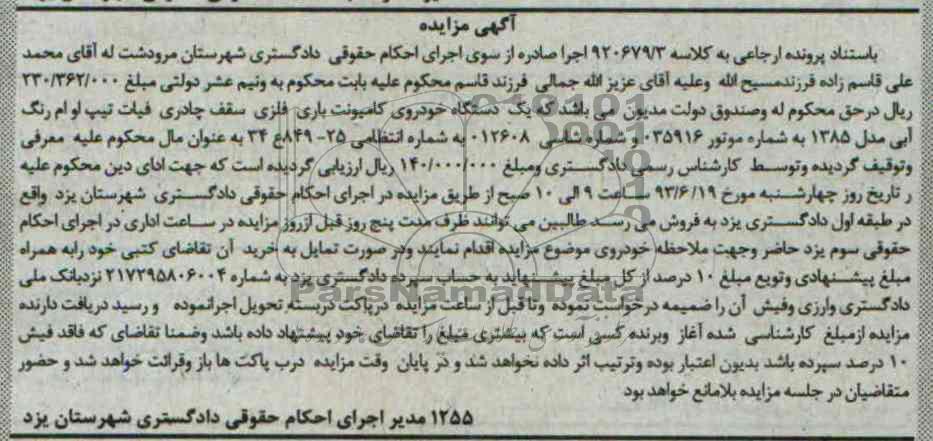 آگهی مزایده
باستناد پرونده ارجاعی به کلاسه ۹۲۰۶۷۹/۳ اجرا صادره از سوی اجرای احکام حقوقی دادگستری شهرستان مرودشت له آقای محمد
علی قاسم زاده فرزندمسیح الله وعلیه آقای عزیز الله جمالی فرزند قاسم محکوم علیه بابت محکوم به ونیم عشر دولتی مبلغ ۲۳۰/۳۶۲/۰۰۰
ریال درحق محکوم له وصندوق دولت مدیون می باشد که یک دستگاه خودروی کامیونت باری فلزی سقف چادری فیات تیپ او ام رنگ
آبی مدل ۱۳۸۵ به شماره موتور ۰۳۵۹۱۶ و شماره شاسی ۰۱۲۶۰۸ به شماره انتظامی ۲۵- ۸۴۹ع ۳۴ به عنوان مال محکوم علیه معرفی
وتوقیف گردیده وتوسط کارشناس رسمی دادگستری ومبلغ ۱۴۰/۰۰۰/۰۰۰ ریال ارزیابی گردیده است که جهت ادای دین محکوم علیه
ر تاریخ روز چهارشنبه مورخ ۹۳/۶/۱۹ ساعت ۹ الی ۱۰ صبح از طریق مزایده در اجرای احکام حقوقی دادگستری شهرستان یزد واقع
در طبقه اول دادگستری یزد به فروش می رسد طالبین می توانند ظرف مدت پنج روز قبل ازروز مزایده در ساعت اداری در اجرای احکام
حقوقی سوم یزد حاضر وجهت ملاحظه خودروی موضوع مزایده اقدام نمایند ودر صورت تمایل به خرید آن تقاضای کتبی خود رابه همراه
مبلغ پیشنهادی وتویع مبلغ ۱۰ درصد از کل مبلغ پیشنهاید به حساب سپرده دادگستری یزد به شماره ۲۱۷۲۹۵۸۰۶۰۰۴ نزدبانک ملی
دادگستری وارزی وفیش آن را ضمیمه درخواست نموده وتا قبل از ساعت مزایده درپاکت دربسته تحویل اجرانموده و رسید دریافت دارنده
مزایده ازمبلغ کارشناسی شده آغاز وبرنده کسی است که بیشتری مبلغ را تقاضای خود پیشنهاد داده باشد وضمنا تقاضای که فاقد فیش
۱۰ درصد سپرده باشد بدیون اعتبار بوده وترتیب اثر داده نخواهد شد و در پایان وقت مزایده درب پاکت ها باز وقرائت خواهد شد و حضور
متقاضیان در جلسه مزایده بلامانع خواهد بود
۱۲۵۵ مدیر اجرای احکام حقوقی دادگستری شهرستان یزد
ParsNamadData